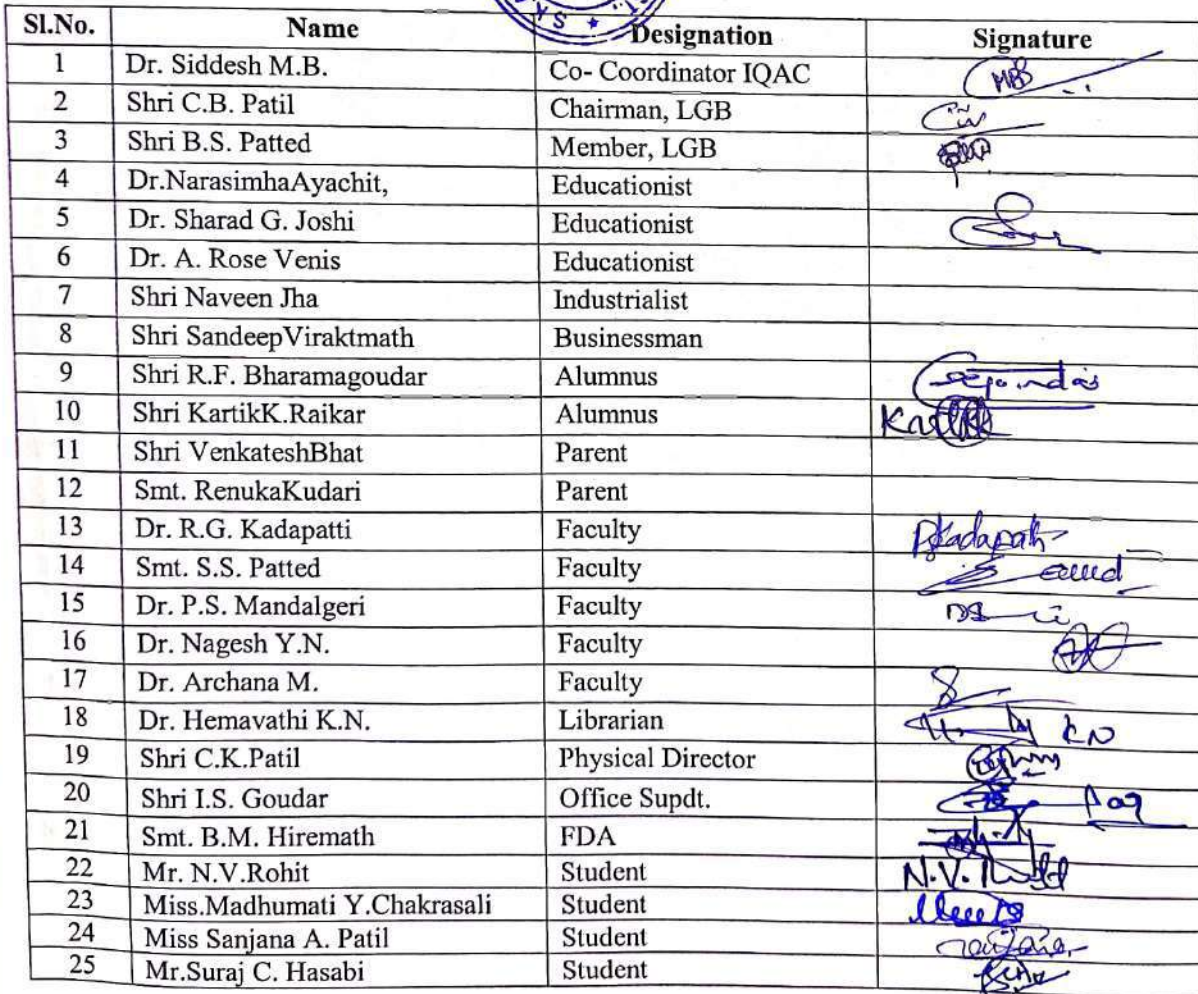 Sl.No. Name Designation Signature
1 Dr. Siddesh M.B. Co- Coordinator IQAC MBS
2 Shri C.B. Patil Chairman, LGB
3 Shri B.S. Patted Member, LGB
4 Dr.NarasimhaAyachit, Educationist
5 Dr. Sharad G. Joshi Educationist
6 Dr. A. Rose Venis Educationist
7 Shri Naveen Jha Industrialist
8 Shri SandeepViraktmath Businessman
9 Shri R.F. Bharamagoudar Alumnus
10 Shri KartikK.Raikar Alumnus
11 Shri VenkateshBhat Parent
12 Smt. RenukaKudari Parent
13 Dr. R.G. Kadapatti Faculty
14 Smt. S.S. Patted Faculty
15 Dr. P.S. Mandalgeri Faculty
16 Dr. Nagesh Y.N. Faculty
17 Dr. Archana M. Faculty
18 Dr. Hemavathi K.N. Librarian KN
19 Shri C.K.Patil Physical Director
20 Shri I.S. Goudar Office Supdt.
21 Smt. B.M. Hiremath FDA
22 Mr. N.V.Rohit Student N.V.
23 Miss.Madhumati Y.Chakrasali Student
24 Miss Sanjana A. Patil Student
25 Mr.Suraj C. Hasabi Student